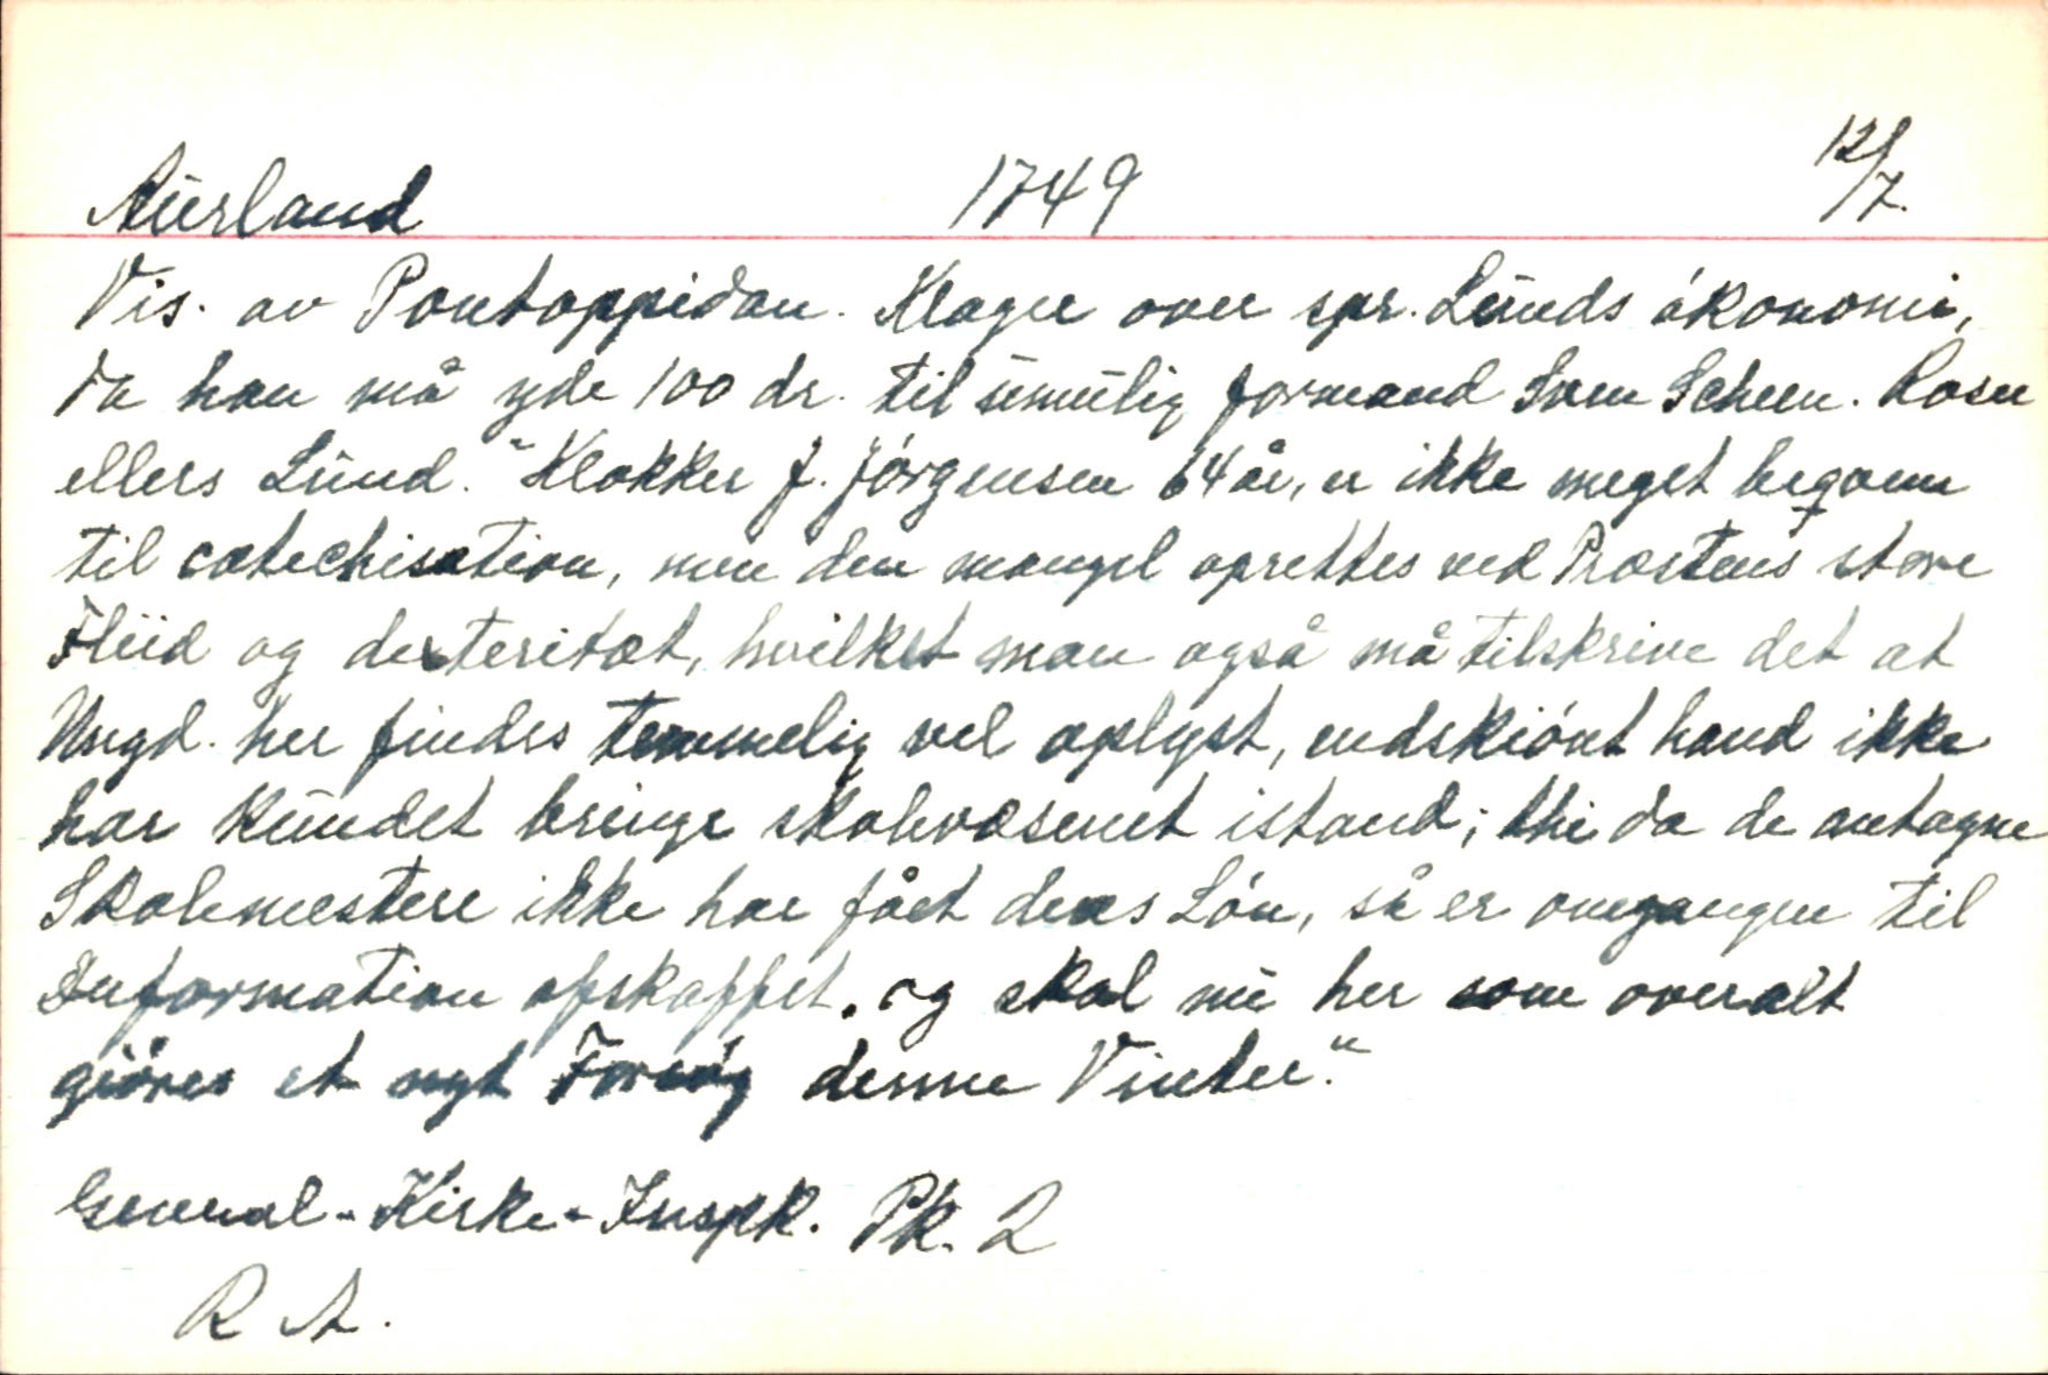 Aurland 1749 12/7.
Vis. av Pontoppidan. Klager over spr. Lunds økonomi,
da han må yde 100 dr. til umulig formand Iver Scheen. Roser
ellers Lund. "Klokker J. Jørgensen 64 år, er ikke meget beqvem
til catechisation, men den mangel oprettes ved Præstens store
Fliid og dexteritæt, hvilket man også må tilskrive det at
Ungd. her findes temmelig vel oplyst, endskiønt hand ikke
har kundet bringe skolevæsenet istand; thi da de antagne
Skolemestere ikke har fået deres Løn, så er omgangen til
Information afskaffet. og skal nu her som overalt
giøres et nyt Forsøg denne Vinter."
General-Kirke-Inspk. Pk. 2
R A.